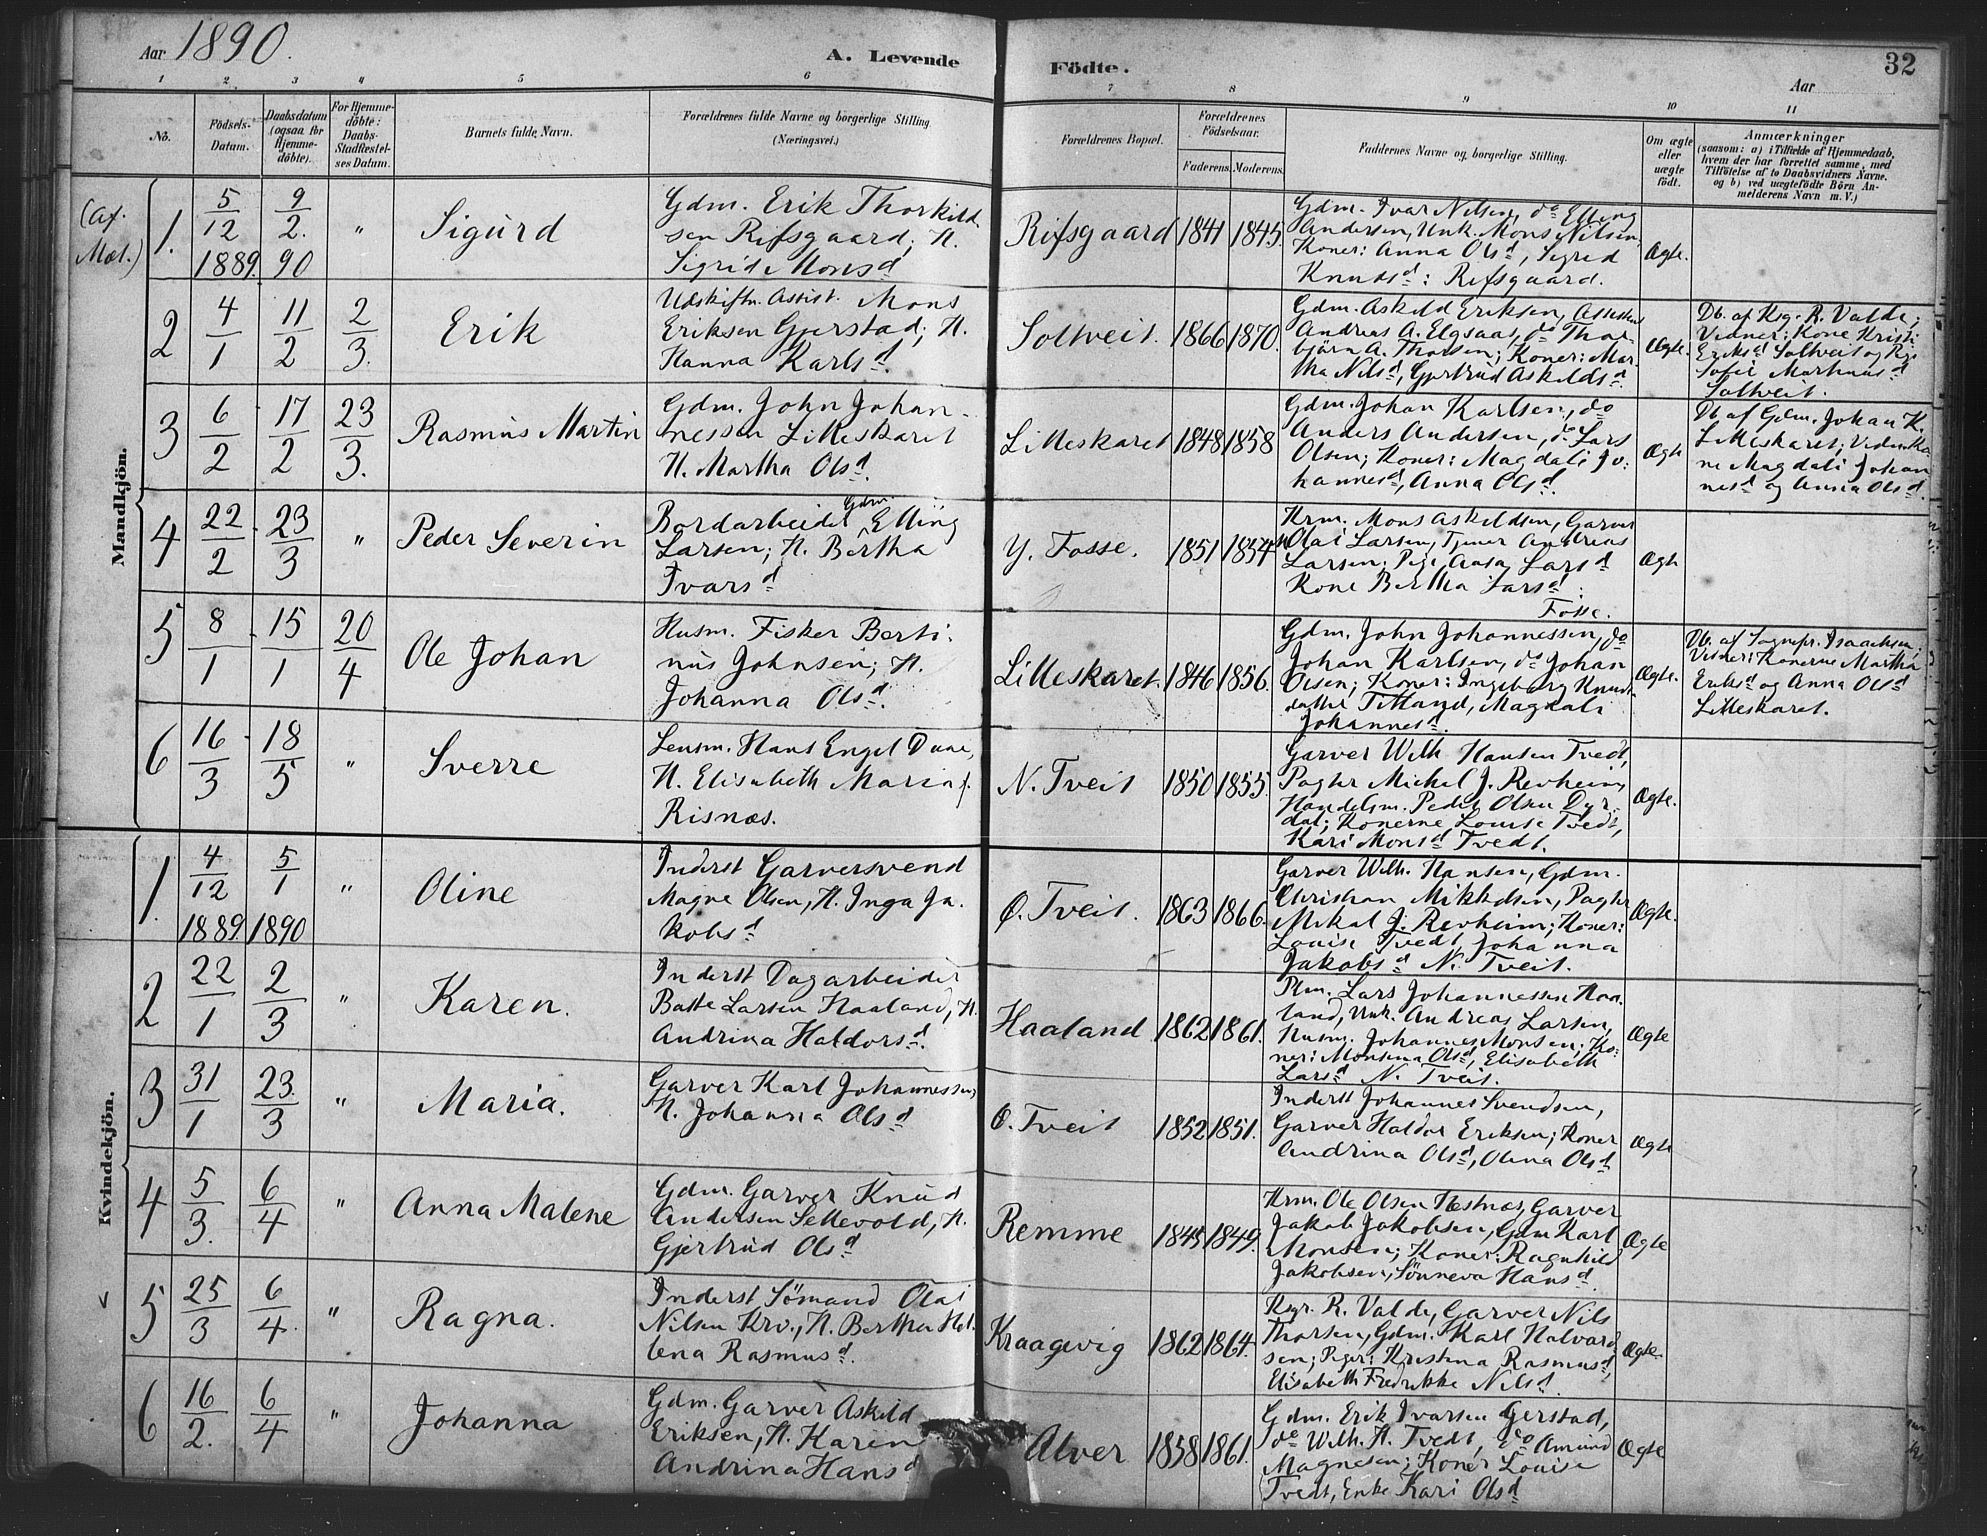 Aar 1890.
A. Levende
Födte.
Aar
32
1 2 3 4 5 6 7 8 9 10 11
No.
Födsels-
Datum.
Daabsdatum
(ogsaa for
Hjemme-
döbte).
For Hjemme-
döbte:
Daabs-
Stadfæstel-
ses Datum.
Barnets fulde Navn.
Forældrenes fulde Navne og borgerlige Stilling
(Næringsvei.)
Forældrenes Bopæl.
Forældrenes
Födselsaar.
Faderens.
Moderens.
Faddernes Navne og borgerlige Stilling.
Om ægte
eller
uægte
födt.
Anmærkninger
(saasom: a) i Tilfælde af Hjemmedaab,
hvem der har forrettet samme, med
Tilföielse af to Daabsvidners Navne.
og b) ved uægtefödte Börn An-
melderens Navn m. V.)
Mandkjön.
(Af.
Mæl.)
1. 5/12 1889. 9/2. 90 " Sigurd
Gdm. Erik Thorkild-
sen Rifsgaard; H.
Sigrid Monsd
Rifsgaard 1841 1845.
Gdm. Ivar Nilsen, do Elling
Andersen, Unk. Mons Nilsen,
Koner: Anna Olsd, Sigrid
Knudsd: Rifsgaard.
Ægte.
2 4/1 11/2 2/3. Erik
Udskiftn. Assist. Mons
Eriksen Gjerstad; H.
Hanna Karlsd.
Soltveit. 1866 1870.
Gdm. Askild Eriksen,
Andreas A. Elgsaas, do Thor-
björn A. Thorsen; Koner: Mar-
tha Nilsd, Gjertrud Askildsd
Ægte.
Db. af Ksgr. R. Valde;
Vidner: Kone Kristi
Eriksd Soltveit og Pge
Sofie Markusd
Soltveit.
3 6/2 17/2 23/3. Rasmus Martin
Gdm. John Johan-
nessen Lilleskaret
H. Martha Olsd.
Lilleskaret 1848 1858
Gdm. Johan Karlsen, do
Anders Andersen, do Lars
Olsen; Koner: Magdali Jo-
hannesd, Anna Olsd.
Ægte
Db. af Gdm. Johan K.
Lilleskaret; Vidn. Ko-
ne Magdali Johan
nesd og Anna Olsd.
4 22/2 23/3 " Peder Severin
Bordarbeider Gdm. Elling
Larsen; H. Bertha
Ivarsd
Y. Fosse. 1851 1854
Krm. Mons Askildsen, Garver
Olai Larsen, Tjener Andreas
Larsen; Pige Anna Larsd
Kone Bertha Larsd:
Fosse.
Ægte
5 8/1 15/1 20/4 Ole Johan
Husm. Fisker Berti-
nus Johnsen; H.
Johanna Olsd.
Lilleskaret. 1846 1856.
Gdm. John Johannessen, do
Johan Karlsen, do Johan
Olsen; Koner: Ingeborg Knuds-
datter Titland, Magdali
Johannesd.
Ægte.
Db. af Sognepr. Isaachsen;
Vidner: Konerne Martha
Eriksd og Anna Olsd
Lilleskaret.
6 16/3 18/5 " Sverre
Lensm. Hans Engel Daae,
H. Elisabeth Maria f.
Risnæs.
N. Tveit 1850 1855.
Garver Wilh. Hansen Tvedt,
Pagter Mickel J. Revheim,
Handelsm. Peder Olsen Dyr-
dal; Konerne Louise Tvedt,
Kari Monsd Tvedt.
Ægte.
Kvindekjön.
1. 4/12 1889 5/1 1890 " Oline
Inderst Garversvend
Magne Olsen, H. Inga Ja-
kobsd
Ø. Tveit. 1863 1866.
Garver Wilh. Hansen, Gdm.
Christian Mikkelsen, Pagter
Mikal J. Revheim; Koner:
Louise Tvedt, Johanna
Jakobsd N. Tveit.
Ægte.
2 22/1 2/3 " Karen.
Inderst Dagarbeider
Batte Larsen Haaland, H.
Andrina Haldorsd.
Haaland 1862 1861.
Plm. Lars Johannessen Haa-
land, Unk. Andreas Larsen,
Husm. Johannes Monsen; Ko-
ner: Monsina Olsd, Elisabeth
Larsd N. Tveit.
Ægte
3 31/1 23./3 " Maria.
Garver Karl Johannessen,
H. Johanna Olsd
Ø. Tveit 1852 1851.
Inderst Johannes Svendsen,
Garver Haldor Eriksen; Koner
Andrina Olsd, Olina Olsd
Ægte
4 5/3. 6/4 " Anna Malene
Gdm. Garver Knud
Andersen Sellevold, H.
Gjertrud Olsd
Remme 1845 1849.
Krm. Ole Olsen Næstnæs, Garver
Jakob Jakobsen, Gdm Karl
Monsen; Koner: Ragnhild
Jakobsen, Sönneva Hansd
Ægte
5 25/3 6/4. " Ragna.
Inderst Sömand Olai
Nilsen Krv., H. Bertha Hel-
lena Rasmusd.
Kraagvig 1862 1864.
Ksgr. R. Valde, Garver Nils
Thorsen, Gdm. Karl Halvard-
sen; Piger: Kristina Rasmusd,
Elisabeth Fredrikke Nilsd.
Ægte.
6 16/2. 6/4 " Johanna
Gdm. Garver Askild
Eriksen, H. Karen
Andrina Hansd
Alver 1858 1861.
Gdm. Erik Ivarsen Gerstad,
do Wilh. H. Tvedt, do Amund
Magnesen; Koner Louise
Tvedt, Enke Kari Olsd
Ægte